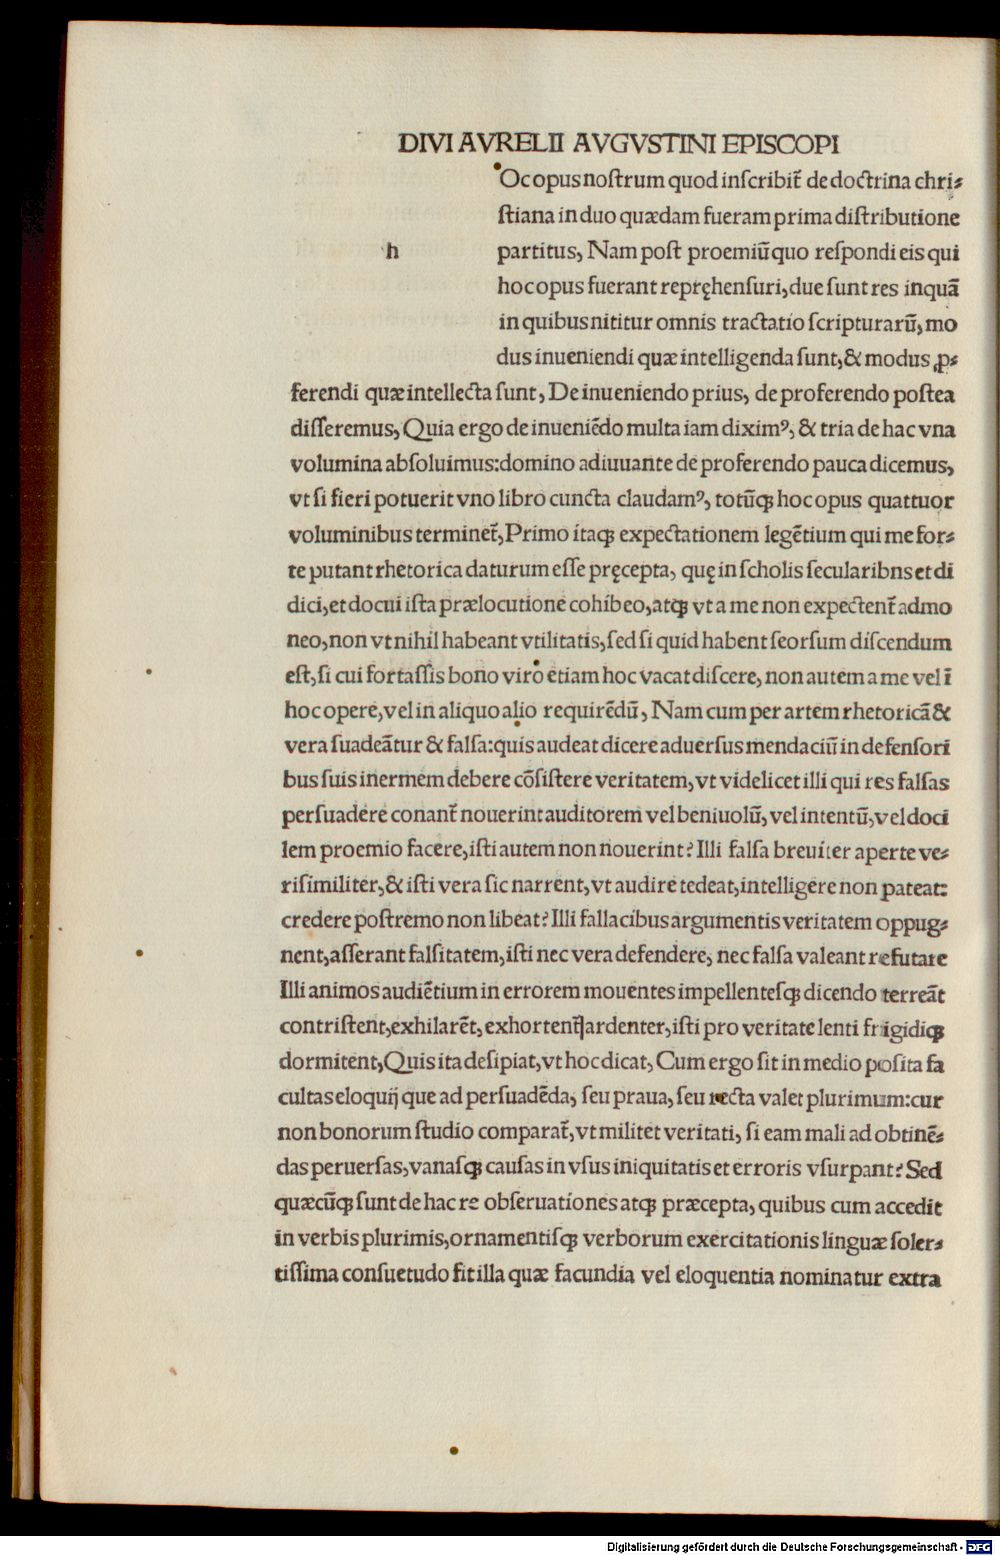 DIVI AVRELII AVGVSTINI EPISCOPI
Oc opus nostrum quod inscribit̃ de doctrina chri⸗
stiana in duo quædam fueram prima distributione
h
partitus, Nam post proemiũ quo respondi eis qui
hoc opus fuerant repręhensuri, due sunt res inquã
in quibus nititur omnis tractatio scripturarũ, mo
dus inueniendi quæ intelligenda sunt, & modus ꝓ⸗
ferendi quæ intellecta sunt, De inueniendo prius, de proferendo postea
disseremus, Quia ergo de inueniẽdo multa iam diximꝰ, & tria de hac vna
volumina absoluimus: domino adiuuante de proferendo pauca dicemus,
vt si fieri potuerit vno libro cuncta claudamꝰ, totũꝗ hoc opus quattuor
voluminibus terminet̃, Primo itaꝗ expectationem legẽtium qui me for⸗
te putant rhetorica daturum esse pręcepta, quę in scholis secularibns et di
dici, et docui ista prælocutione cohibeo, atꝗ vt a me non expectent̃ admo
neo, non vt nihil habeant vtilitatis, sed si quid habent seorsum discendum
est, si cui fortassis bono viro etiam hoc vacat discere, non autem a me vel ĩ
hoc opere, vel in aliquo alio requirẽdũ, Nam cum per artem rhetoricã &
vera suadeãtur & falsa: quis audeat dicere aduersus mendaciũ in defensori
bus suis inermem debere cõsistere veritatem, vt videlicet illi qui res falsas
persuadere conant̃ nouerint auditorem vel beniuolũ, vel intentũ, vel doci
lem proemio facere, isti autem non nouerint? Illi falsa breuiter aperte ve⸗
risimiliter, & isti vera sic narrent, vt audire tedeat, intelligere non pateat:
credere postremo non libeat? Illi fallacibus argumentis veritatem oppug⸗
nent, asserant falsitatem, isti nec vera defendere, nec falsa valeant refutare
Illi animos audiẽtium in errorem mouentes impellentesꝗ dicendo terreãt
contristent, exhilarẽt, exhortent̃ ardenter, isti pro veritate lenti frigidiꝗ
dormitent, Quis ita desipiat, vt hoc dicat, Cum ergo sit in medio posita fa
cultas eloquij que ad persuadẽda, seu praua, seu recta valet plurimum: cur
non bonorum studio comparat̃, vt militet veritati, si eam mali ad obtinẽ⸗
das peruersas, vanasꝗ causas in vsus iniquitatis et erroris vsurpant? Sed
quæcũꝗ sunt de hac re obseruationes atꝗ præcepta, quibus cum accedit
in verbis plurimis, ornamentisꝗ verborum exercitationis linguæ soler⸗
tissima consuetudo fit illa quæ facundia vel eloquentia nominatur extra
Digitalisierung gefördert durch die Deutsche Forschungsgemeinschaft - DFG